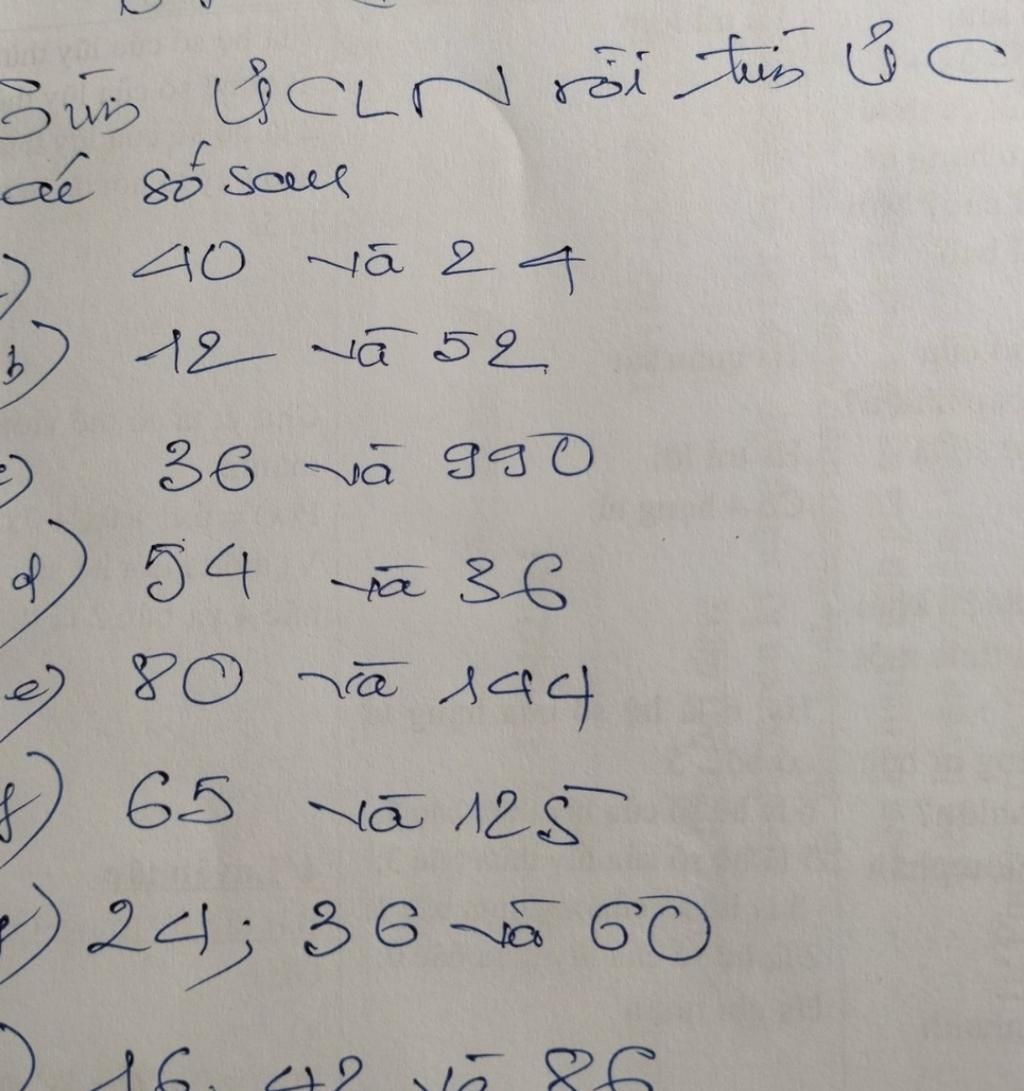 Tìm ƯCLN rồi tìm ƯC
các số sau
) 40 và 24
b) 12 và 52
c) 36 và 990
d) 54 và 36
e) 80 và 144
f) 65 và 125
g) 24; 36 và 60
) 16; 42 và 86